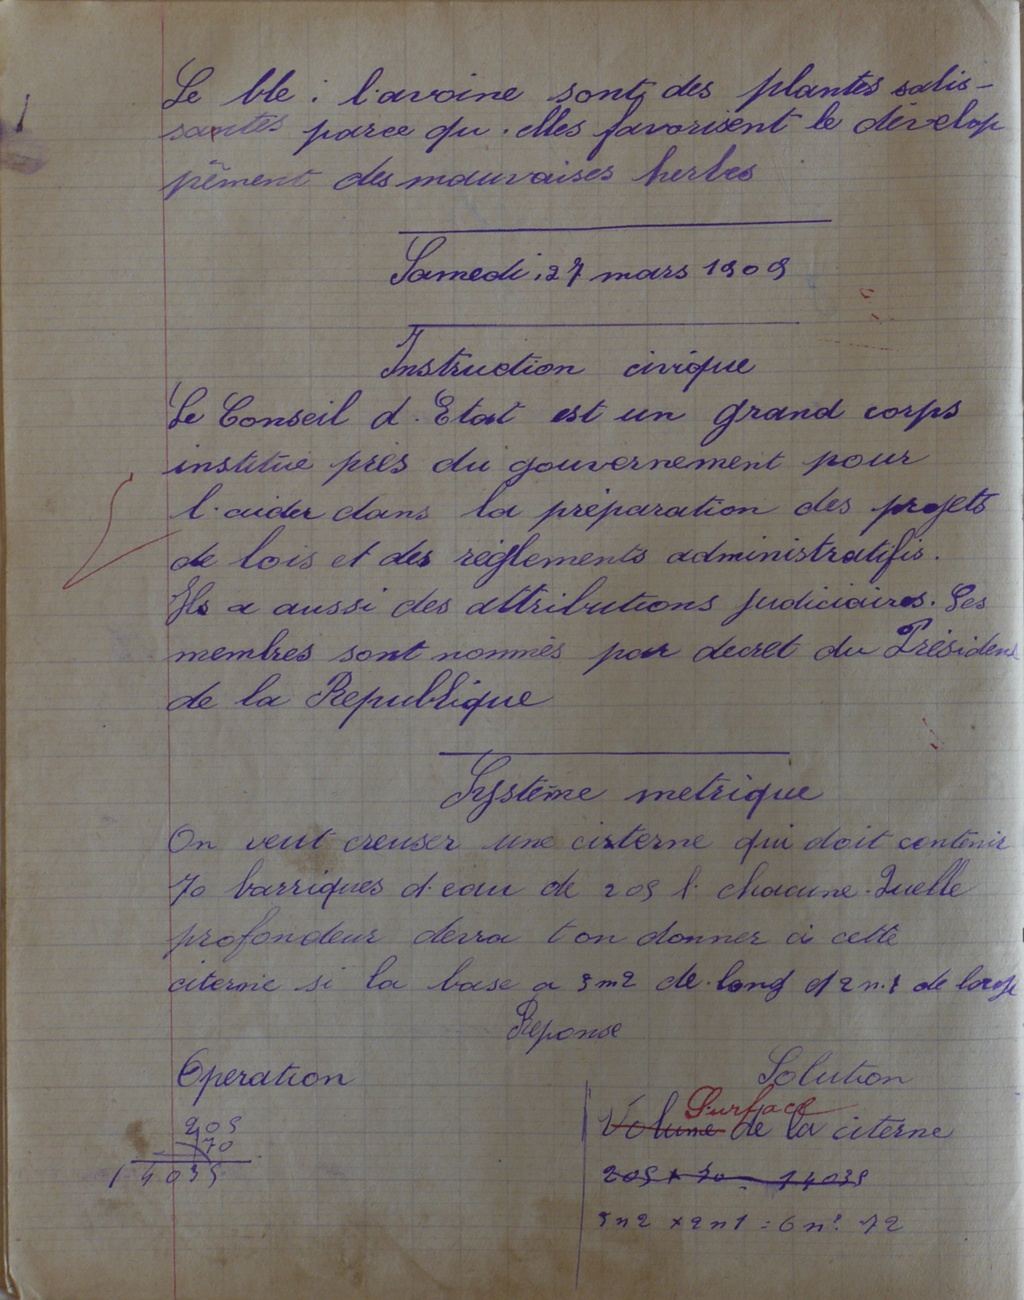 Le ble : l'avoine sont des plantes salis-
santes parce qu'elles favorisent le dévelop
pêment des mauvaises herbes
Samedi, 27 mars 1909
Instruction civique
Le Conseil d'Etat est un grand corps
institué près du gouvernement pour
l'aider dans la préparation des projets
de lois et des réglements administratifs.
Ils a aussi des attributions judiciaires. Ses
membres sont nommés par decret du Président
de la Republique
Système metrique
On veut creuser une cisterne qui doit contenir
70 barriques d'eau de 205 l. chacune. Quelle
profondeur devra t on donner à cette
citerne si la base a 3m2 de long et 2m.1 de large
Réponse
Operation
Solution
Surface
Volume de la citerne
205
70
14035
205 x 70 = 14035
3m2 x 2m1 = 6m². 72